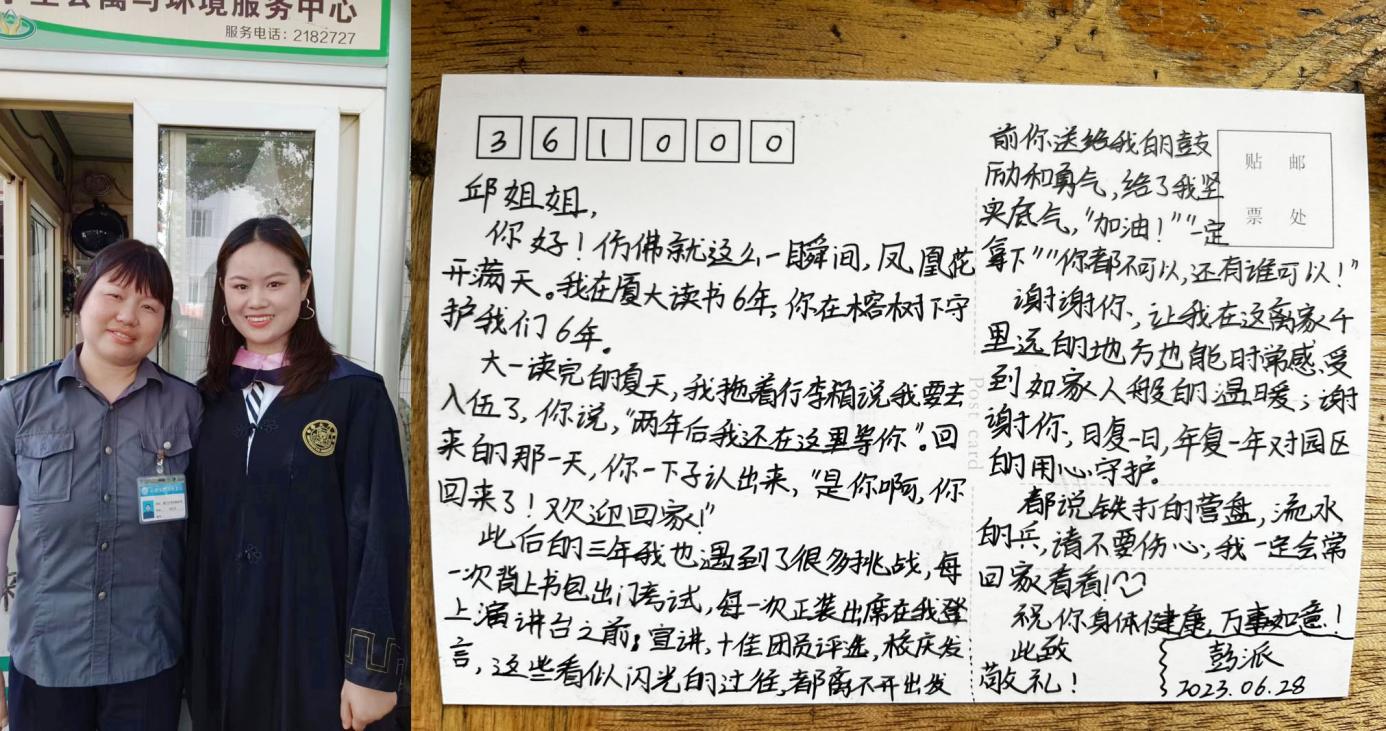 学生公寓与环境服务中心
服务电话：2182727
361000
邱姐姐，
你好！仿佛就这么一瞬间，凤凰花
开满天。我在厦大读书6年，你在榕树下守
护我们6年。
大一读完的夏天，我拖着行李箱说我要去
入伍了，你说，“两年后我还在这里等你”。回
来的那一天，你一下子认出来，“是你啊，你
回来了！欢迎回家！”
此后的三年我也遇到了很多挑战，每
一次背上书包出门考试，每一次正装出席在我登
上演讲台之前：宣讲，十佳团员评选，校庆发
言，这些看似闪光的过往，都离不开出发
前你送给我的鼓
励和勇气，给了我坚
实底气，“加油！”“一定
拿下”“你都不可以，还有谁可以！”
谢谢你，让我在这离家千
里远的地方也能时常感受
到如家人般的温暖；谢
谢你，日复一日，年复一年对园区
的用心守护。
都说铁打的营盘，流水
的兵，请不要伤心，我一定会常
回家看看！
祝你身体健康，万事如意！
此致
敬礼！
彭派
2023.06.28
贴邮
票处
Post card